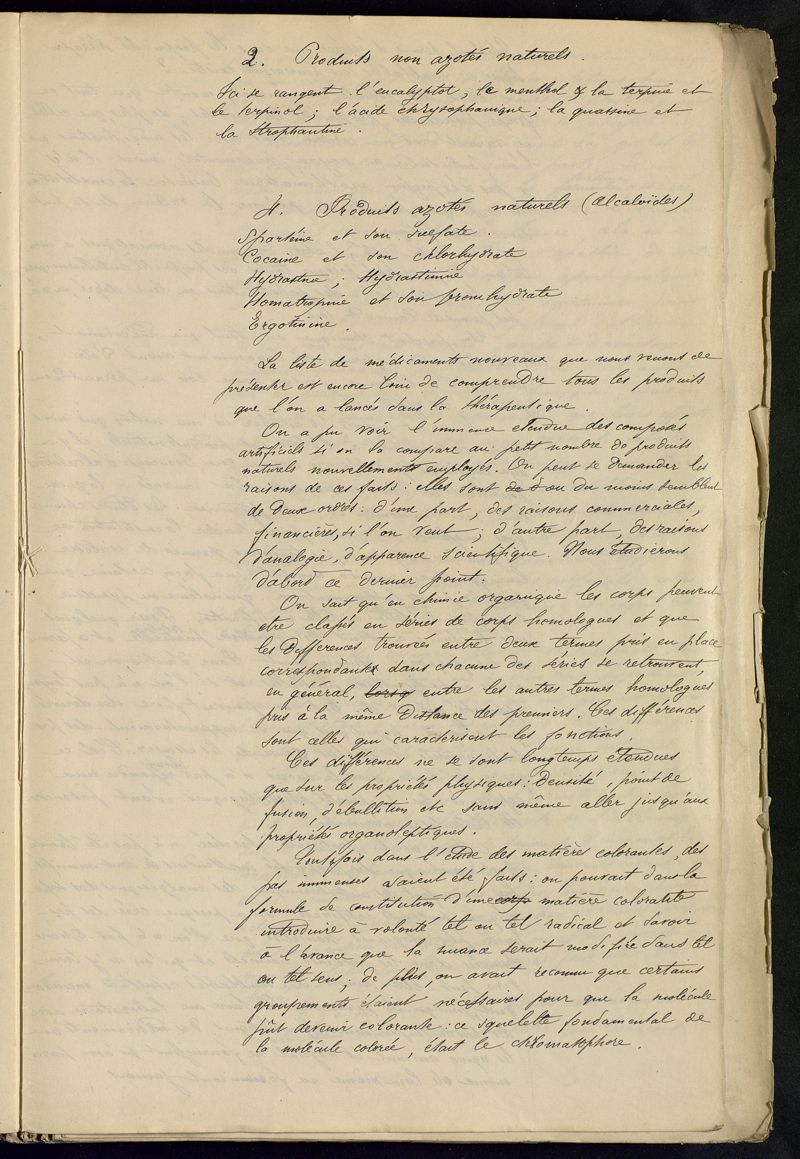 2. Produits non azotés naturels.
Ici se rangent l'eucalyptol, le menthol & la terpine et
le terpinol; l'acide chrysophanique; la quassine et
la Strophantine.
4. Produits azotés naturels (alcaloïdes)
Spartéine et son sulfate.
Cocaïne et son chlorhydrate
Hydrastine; Hydrastinine
Homatropine et son bromhydrate
Ergotinine.
La liste de médicaments nouveaux que nous venons de
présenter est encore loin de comprendre tous les produits
que l'on a lancés dans la thérapeutique.
On a pu voir l'immense étendue des composés
artificiels si on la compare au petit nombre de produits
naturels nouvellements employés. On peut se demander les
raisons de ces faits: elles sont de d ou du moins semblent
de deux ordres: d'une part, des raisons commerciales,
financières, si l'on veut; d'autre part, des raisons
d'analogie, d'apparence scientifique. Nous étudierons
d'abord ce dernier point.
On sait qu'en chimie organique les corps peuvent
etre classés en séries de corps homologues et que
les différences trouvées entre deux termes pris en place
correspondante dans chacune des séries se retrouvent,
en général, lorsq entre les autres termes homologues
pris à la même distance des premiers. Ces différences
sont celles qui caractérisent les fonctions.
Ces différences ne se sont longtemps étendues
que sur les propriétés physiques: densité, point de
fusion, d'ébullition etc sans même aller jusqu'aux
propriétés organoleptiques.
Toutefois dans l'étude des matières colorantes, des
pas immenses avaient été faits: on pouvait dans la
formule de constitution d'une corps matière colorante
introduire à volonté tel ou tel radical et savoir
à l'avance que la nuance serait modifiée dans tel
ou tel sens; de plus, on avait reconnu que certains
groupements étaient nécessaires pour que la molécule
pût devenir colorante: ce squelette fondamental de
la molécule colorée, était le chromatophore.